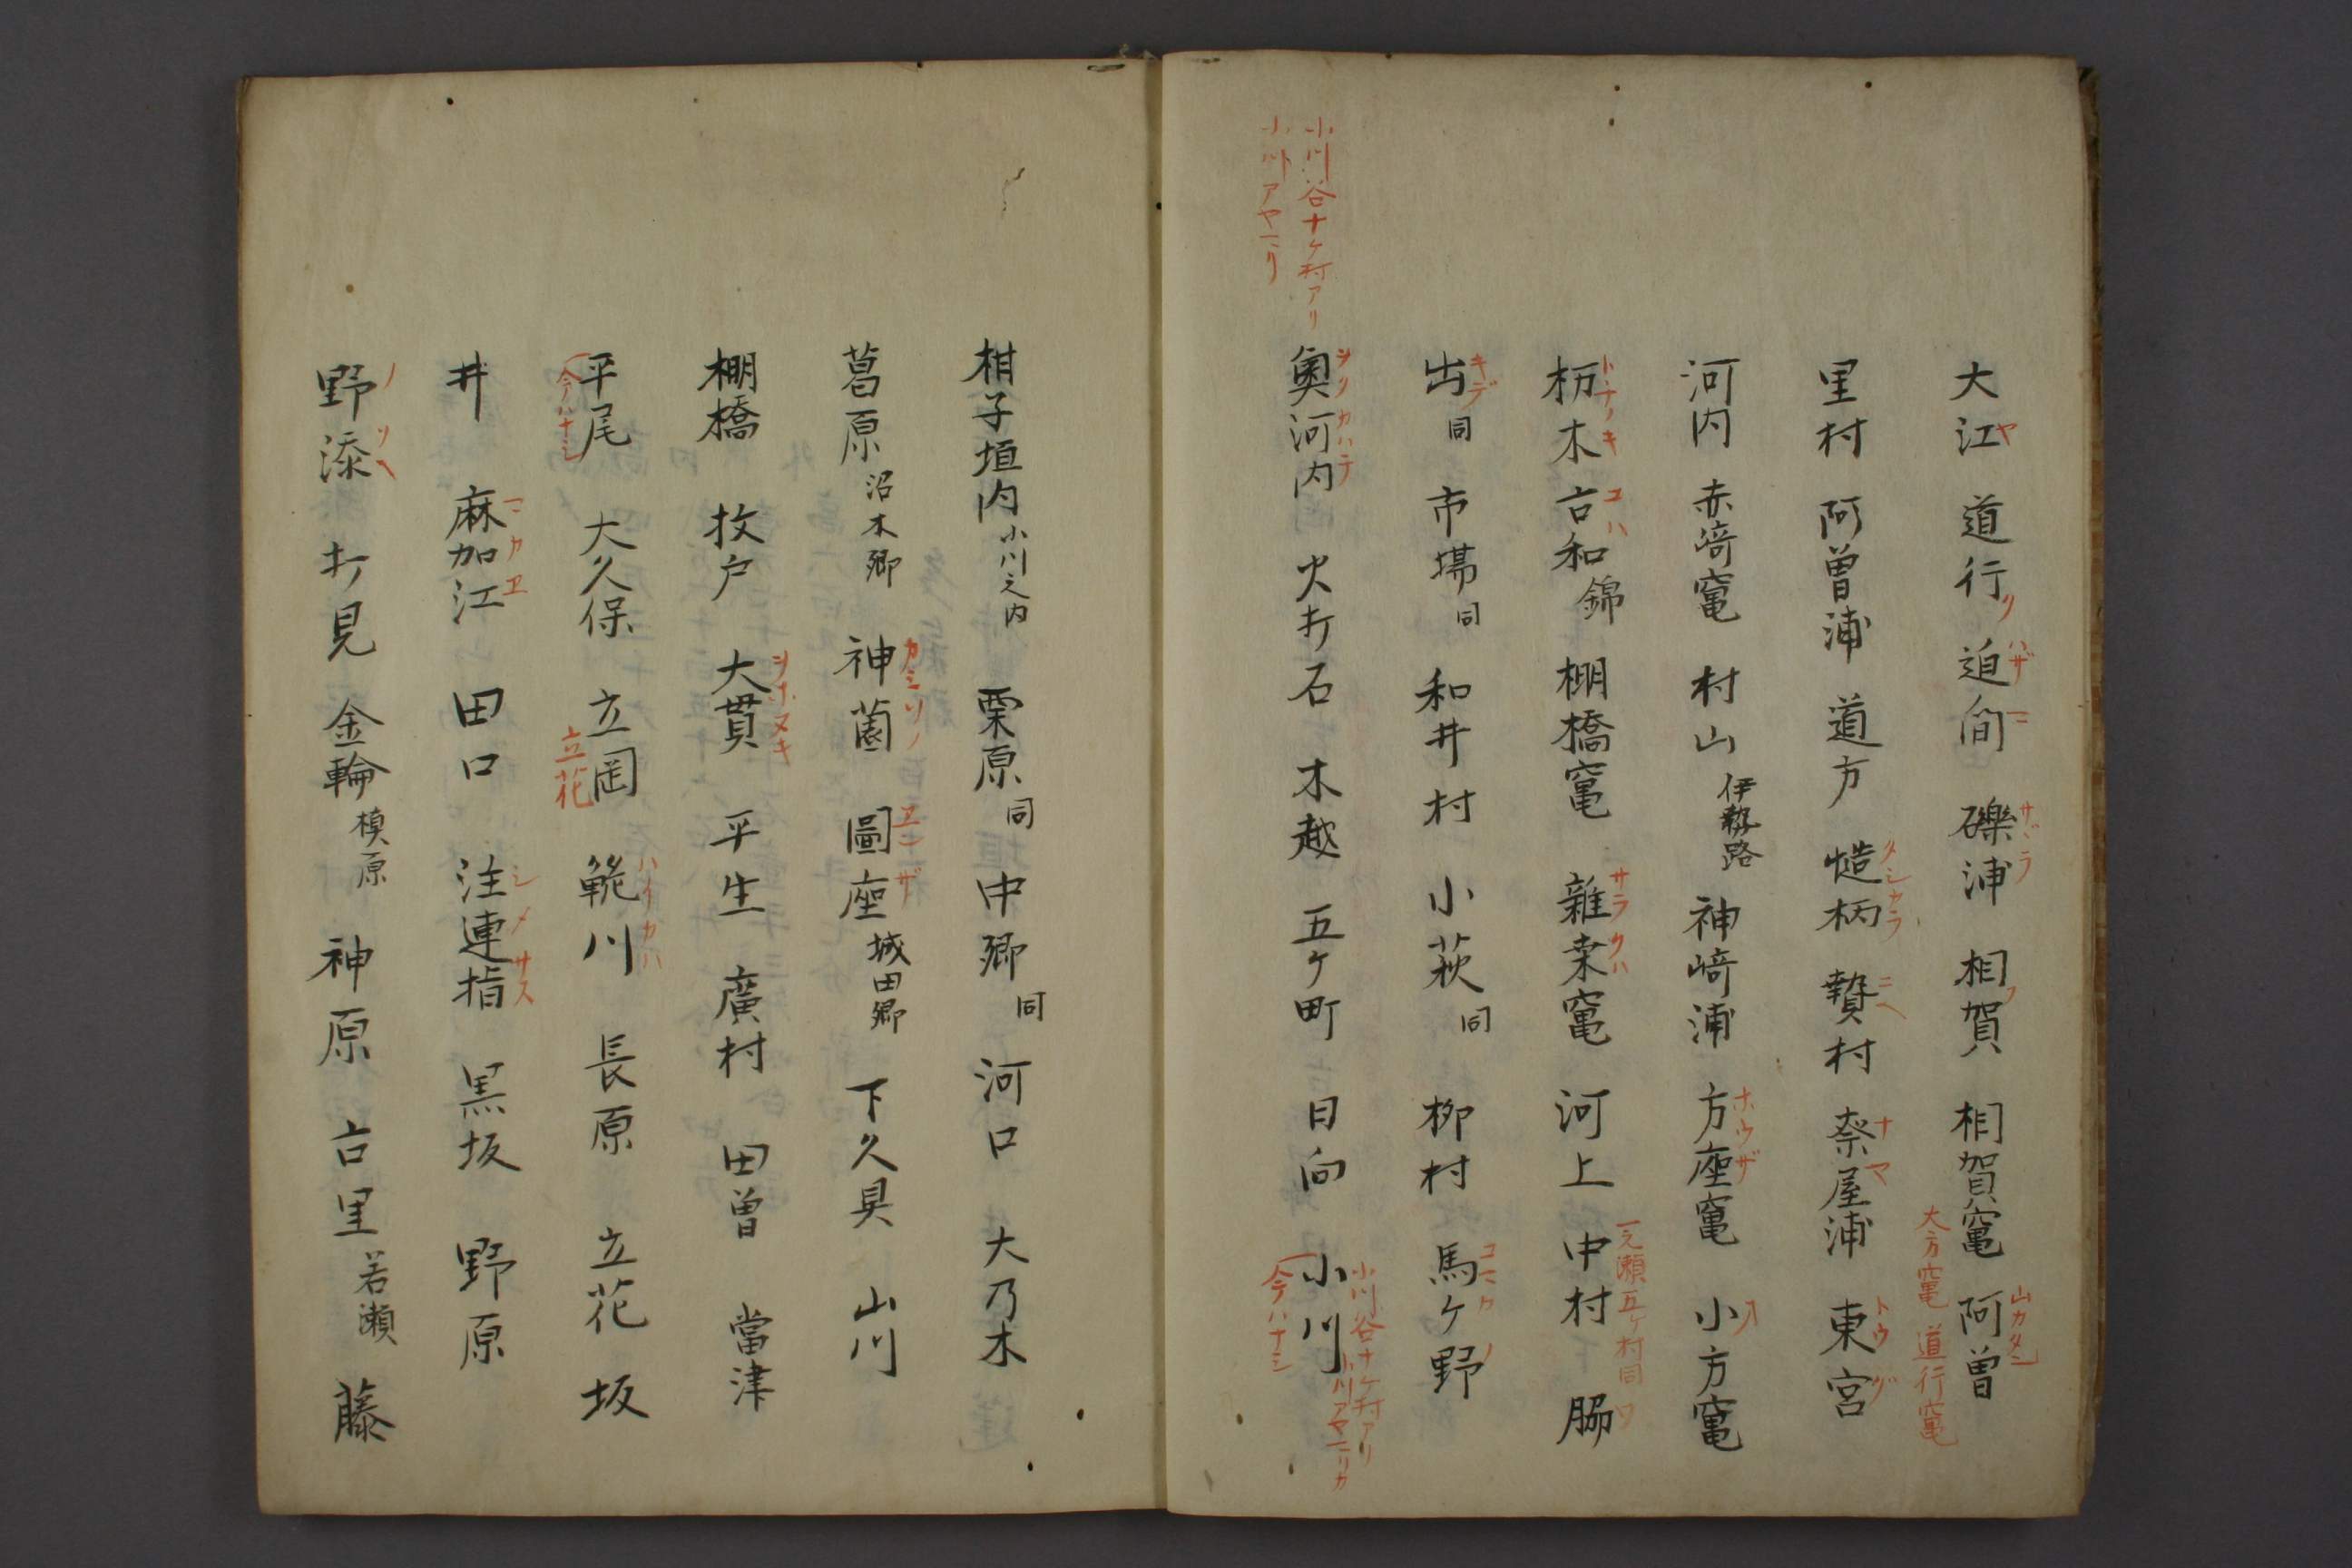 大江 道行 迫間 礫浦 相賀 相賀竃 阿曽
大方竃 道行竃
里村 阿曽浦 道方 慥柄 贄村 奈屋浦 東宮
河内 赤﨑竃 村山 伊勢路 神﨑浦 方座竃 小方竃
一之瀬五ヶ村同
杤木 古和 錦 棚橋竃 雑桒竃 河上 中村 脇
出 同 市場 同 和井村 小萩 同 柳村 馬ケ野
小川谷十ケ村アリ
小川アヤマリカ
小川谷十ケ村アリ
小川アヤマリ
奥河内 火打石 木越 五ケ町 日向 小川
今ハナシ
柑子垣内 小川之内 栗原 同 中郷 同 河口 大乃木
葛原 沼木郷 神薗 圖座 城田郷 下久具 山川
棚橋 牧戸 大貫 平生 廣村 田曽 當津
平尾 大久保 立岡 川 長原 立花 坂
今ハナシ 立花
井 麻加江 田口 注連指 黒坂 野原
野添 打見 金輪 模原 神原 古里 若瀬 藤